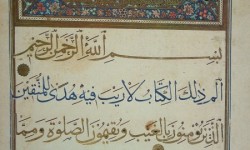 بسم الله الرحمن الرحيم
الم ذلك الكتاب لا ريب فيه هدى للمتقين
الذين يؤمنون بالغيب ويقيمون الصلوة ومما